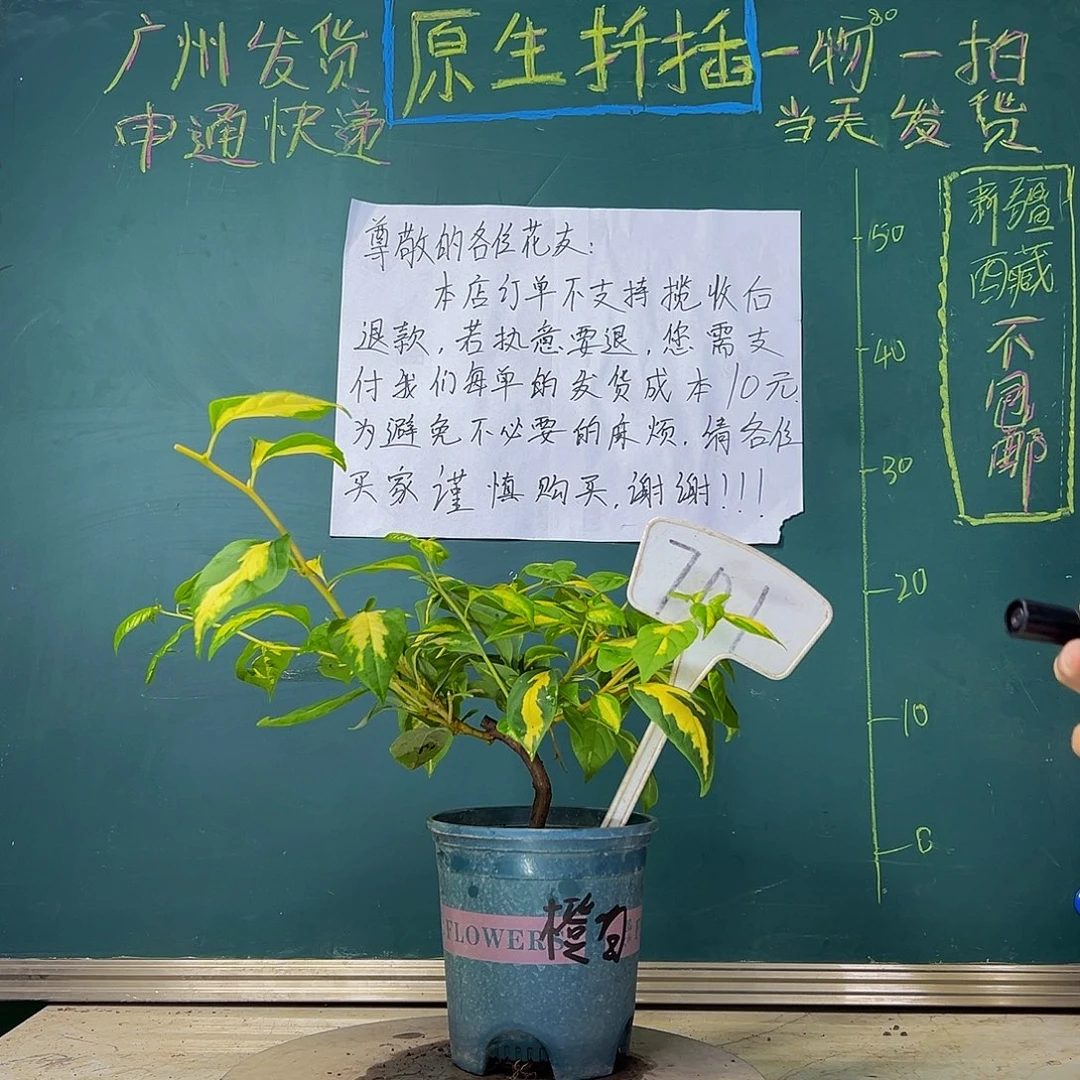 广州发货
申通快递
原生扦插
一物一拍
当天发货
80
50
40
30
20
10
0
新疆
西藏
不包邮
尊敬的各位花友：
本店订单不支持揽收后
退款，若执意要退，您需支
付我们每单的发货成本10元.
为避免不必要的麻烦，请各位
买家谨慎购买，谢谢！！！
701
FLOWERS
橙